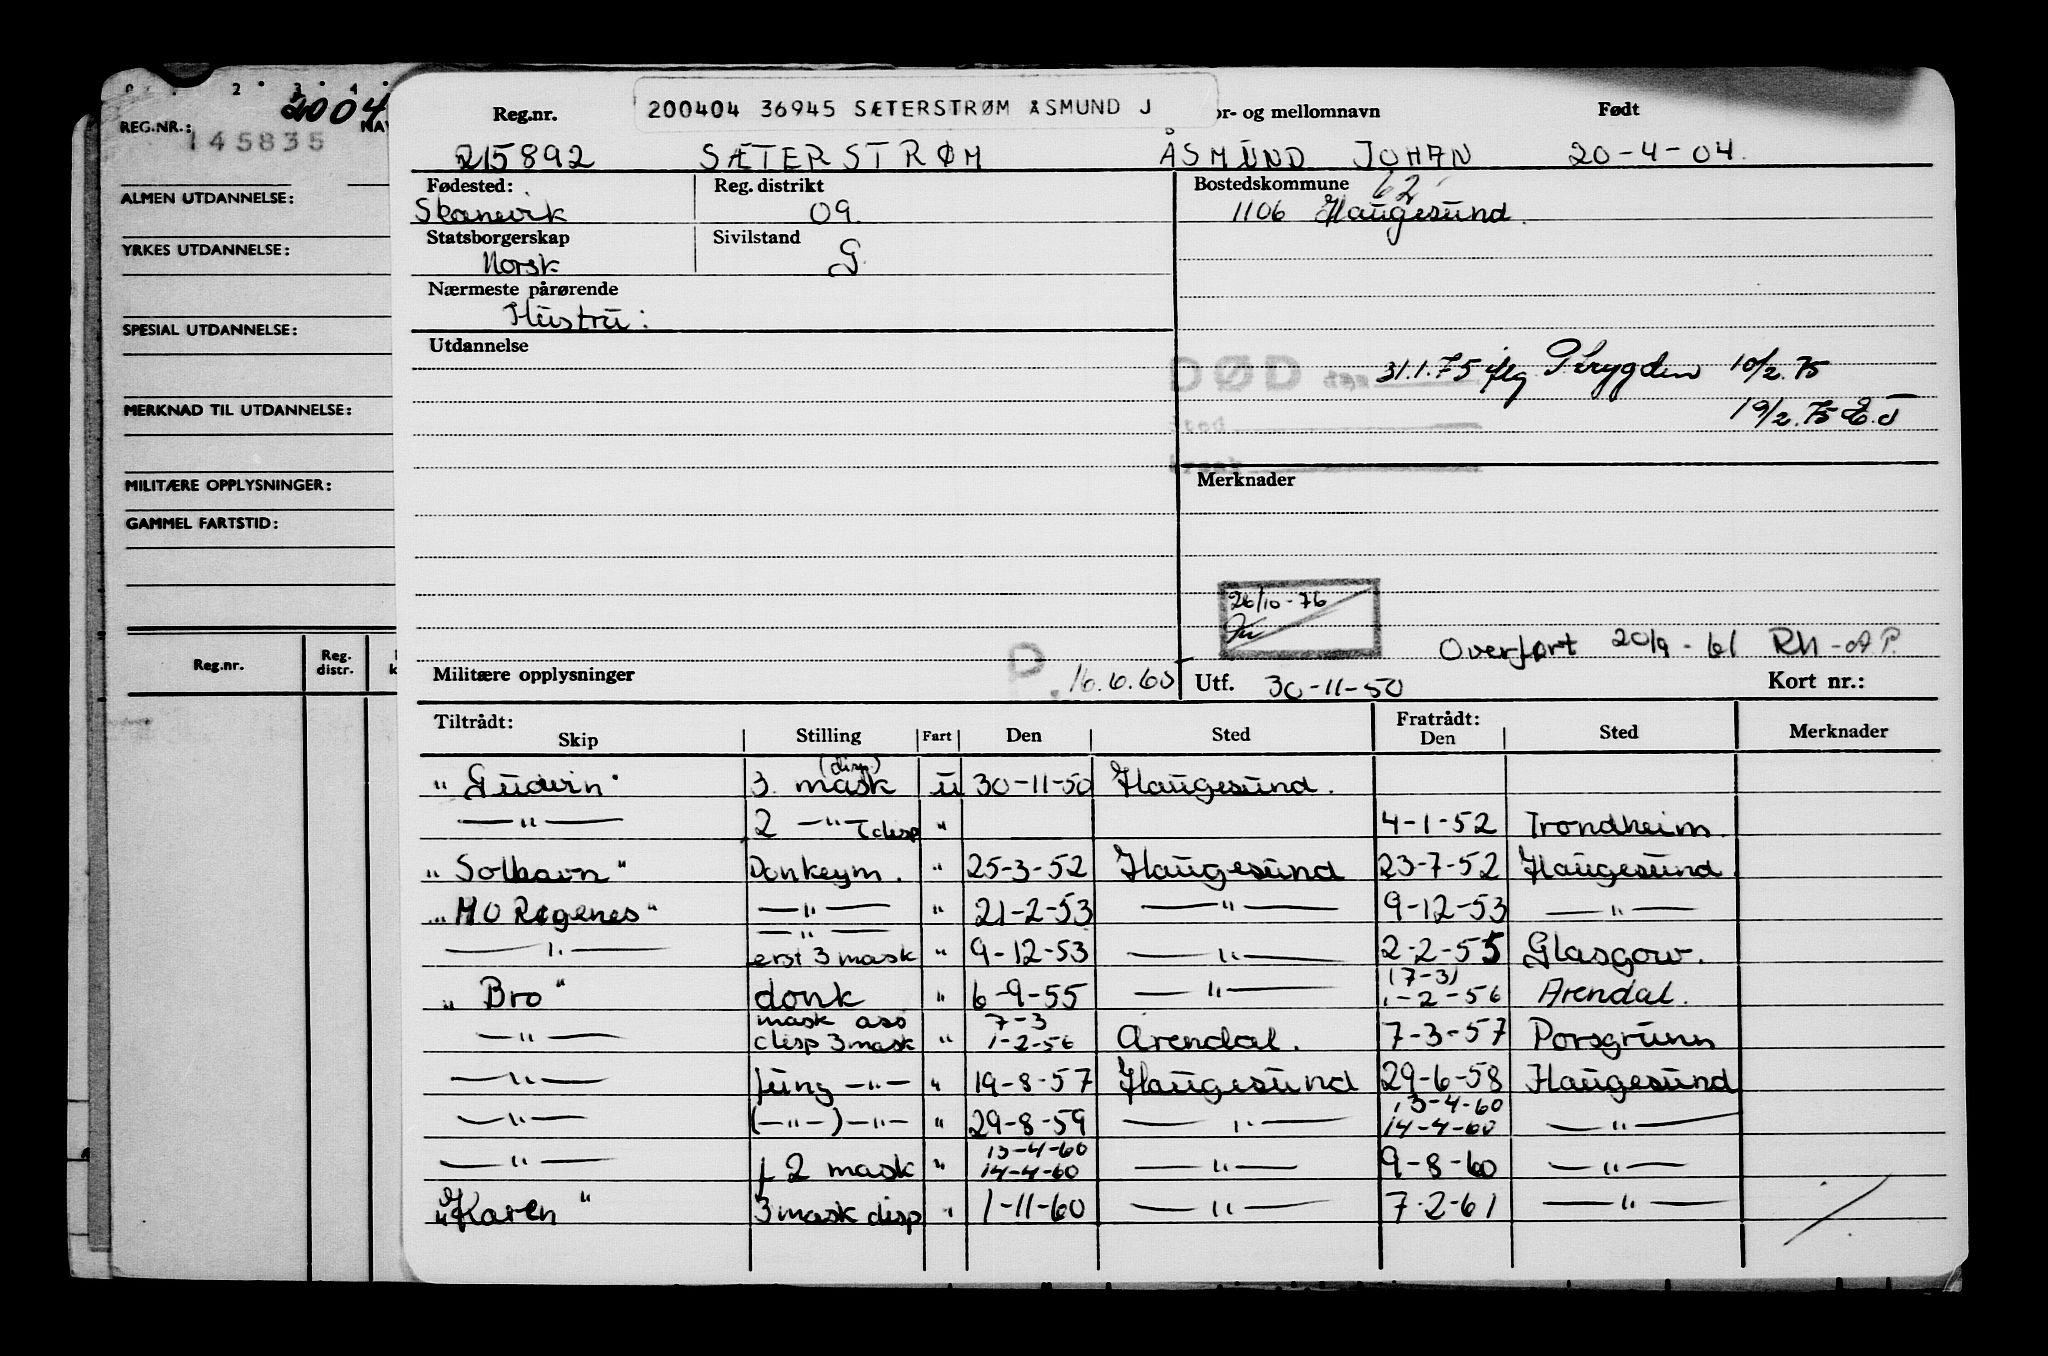 2 3 4
2004
REG.NR.: NAV
145835
ALMEN UTDANNELSE:
YRKES UTDANNELSE:
SPESIAL UTDANNELSE:
MERKNAD TIL UTDANNELSE:
MILITÆRE OPPLYSNINGER:
GAMMEL FARTSTID:
Reg.nr. Reg. distr. k
200404 36945 SÆTERSTRØM ÅSMUND J
Reg.nr. or- og mellomnavn Født
215892 SÆTERSTRØM ÅSMUND JOHAN 20-4-04.
Fødested: Reg. distrikt Bostedskommune 62
Skånevik 09. 1106 Haugesund.
Statsborgerskap Sivilstand
Norsk G.
Nærmeste pårørende
Hustru:
Utdannelse
DØD den 31.1.75 iflg P.trygden 10/2.75
Sted 19/2.75 E.J
Årsak
Merknader
26/10-76
Overført 20/9-61 Rh-AP.
Militære opplysninger P. 16.6.60 Utf. 30-11-50 Kort nr.:
Tiltrådt: Fratrådt:
Skip Stilling Fart Den Sted Den Sted Merknader
"Gudvin" 3. mask (disp.) u 30-11-50 Haugesund.
—"— 2 —"— (disp " 4-1-52 Trondheim.
"Solhavn" Donkeym. " 25-3-52 Haugesund 23-7-52 Haugesund.
"H O Rogenes" —"— " 21-2-53 —"— 9-12-53 —"—
—"— —"— erst 3 mask " 9-12-53 —"— 2-2-55 Glasgow.
"Bro" donk " 6-9-55 —"— (7-3) 1-2-56 Arendal.
—"— mask ass disp 3 mask " 7-3 1-2-56 Arendal. 7-3-57 Porsgrunn
—"— fung —"— " 19-8-57 Haugesund 29-6-58 Haugesund
—"— (—"—) —"— " 29-8-59 —"— 13-4-60 14-4-60 —"—
—"— f 2 mask " 13-4-60 14-4-60 —"— 9-8-60 —"—
"Karen" 3 mask disp " 1-11-60 —"— 7-2-61 —"—